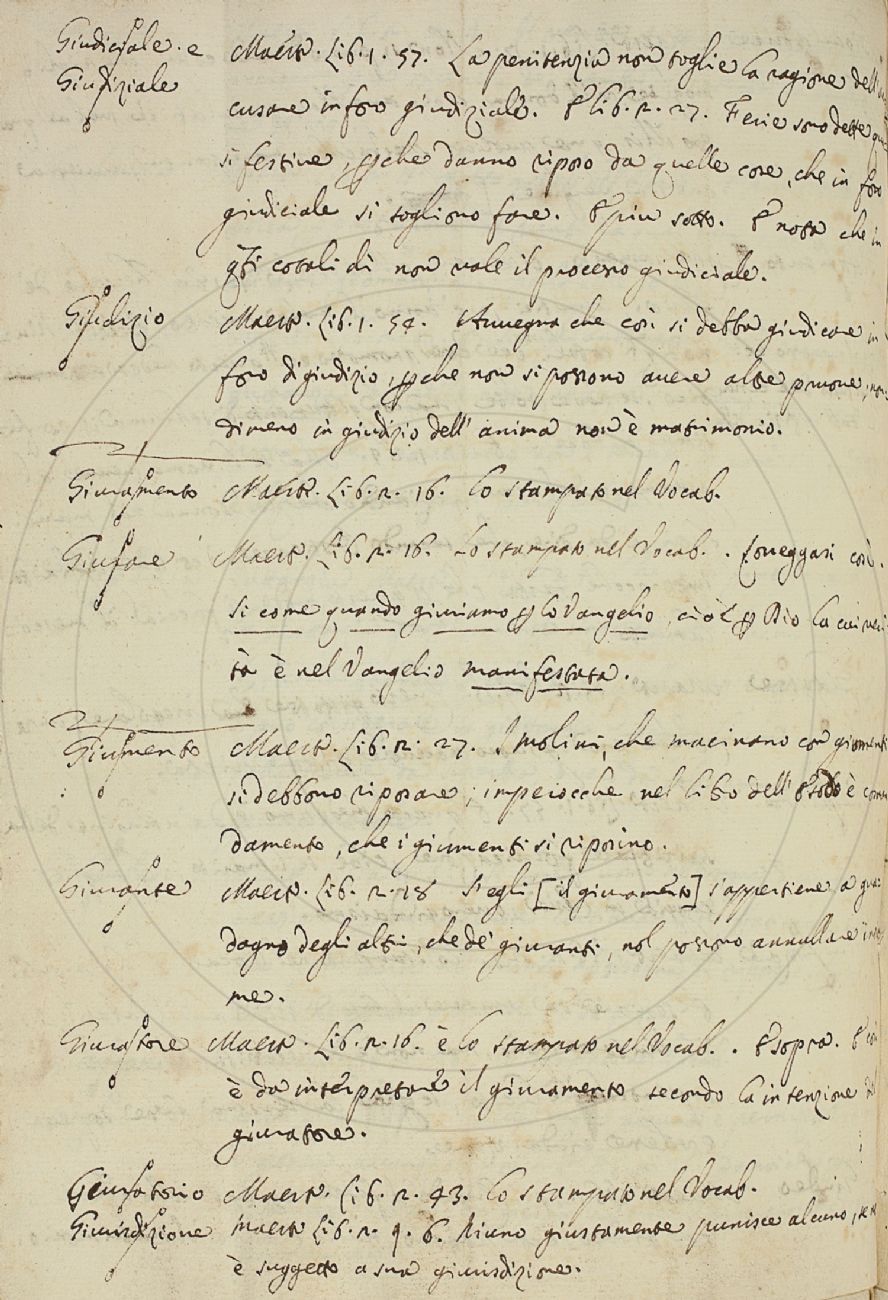 Giudiciale. e Maestr. Lib. 1. 57. La penitenzia non toglie la ragione dell'
Giudiziale cusare in foro giudiziale. E lib. 2. 27. Ferie sono dette
si festive, perche danno riposo da quelle cose, che in foro
giudiciale si sogliono fare. E piu sotto. E nota che in
q̃ti cotali dì non vale il processo giudiciale.
Giudizio Maestr. Lib. 1. 54. Avvegna che così si debba giudicare in
foro di giudizio, perche non si possono avere altre pruove,
dimeno in giudizio dell'anima non è matrimonio.
Giuramento Maestr. Lib. 2. 16. Lo stampato nel Vocab.
Giurare Maestr. Lib. 2. 16. Lo stampato nel Vocab. . Correggasi così.
Si come quando giuriamo per lo Vangelio, cioè per Dio la cui veri-
tà è nel Vangelio manifestata.
Giumento Maestr. Lib. 2. 27. I molini, che macinano con giomenti
si debbono riposare; imperocche nel libro dell'Esodo è coman
damento, che i giumenti si riposino.
Giurante Maestr. Lib. 2. 18 S'egli [il giuramento] s'appertiene a gua-
dagno degli altri, che de' giuranti, nol possono annullare
me.
Giuratore Maestr. Lib. 2. 16. è lo stampato nel Vocab. . E sopra. E così
è da interpretare il giuramento secondo la intenzione del
giuratore.
Giuratorio Maestr. Lib. 2. 43. Lo stampato nel Vocab.
Giurisdizione Maestr. Lib. 2. 9. 6. Niuno giustamente punisce alcuno, se n
è suggetto a sua giurisdizione.